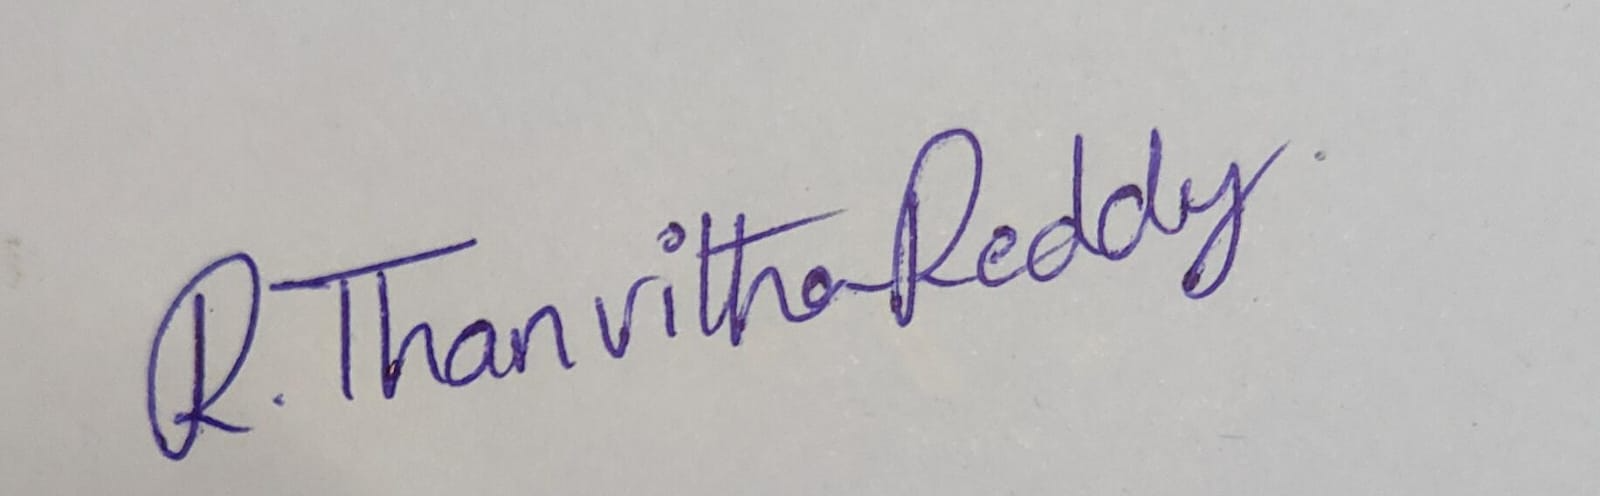 R. Thanvitha Reddy.